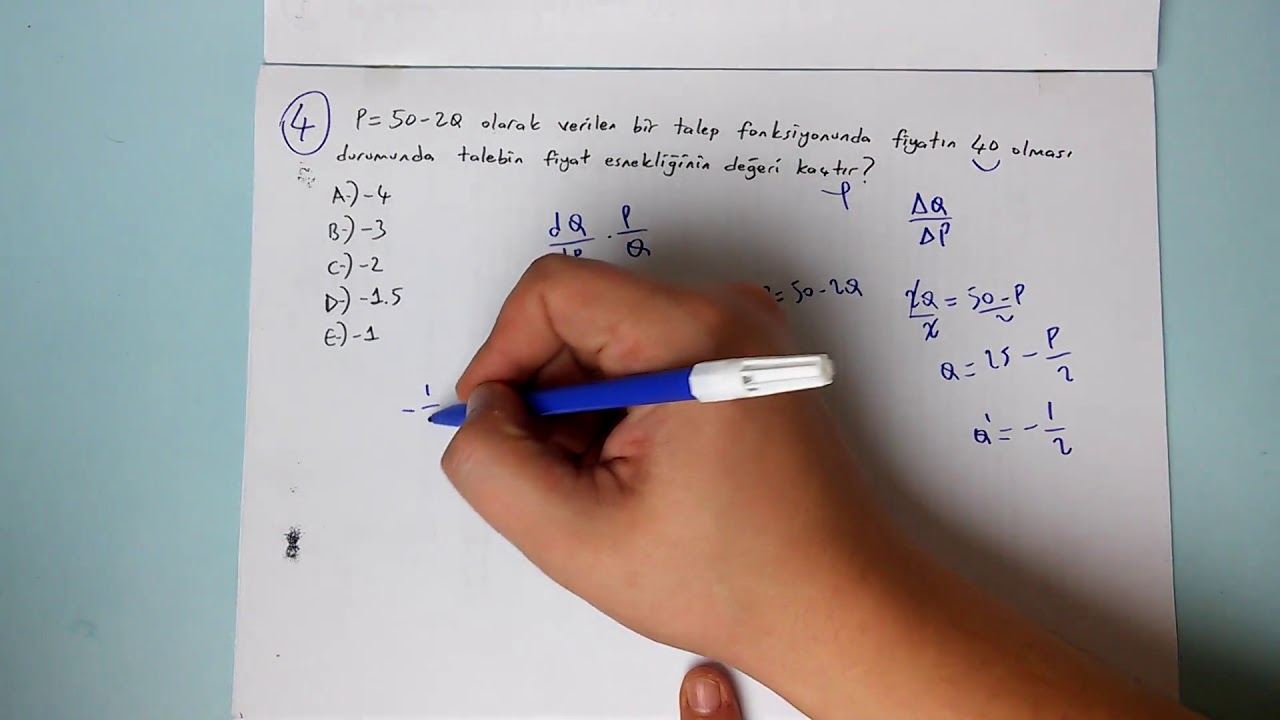 4 P = 50 - 2Q olarak verilen bir talep fonksiyonunda fiyatın 40 olması
durumunda talebin fiyat esnekliğinin değeri kaçtır?
A-) -4
B-) -3
C-) -2
D-) -1.5
E-) -1
dQ/dP · P/Q
P
ΔQ/ΔP
= 50 - 2Q
2Q/2 = 50 - P/2
Q = 25 - P/2
Q' = - 1/2
- 1